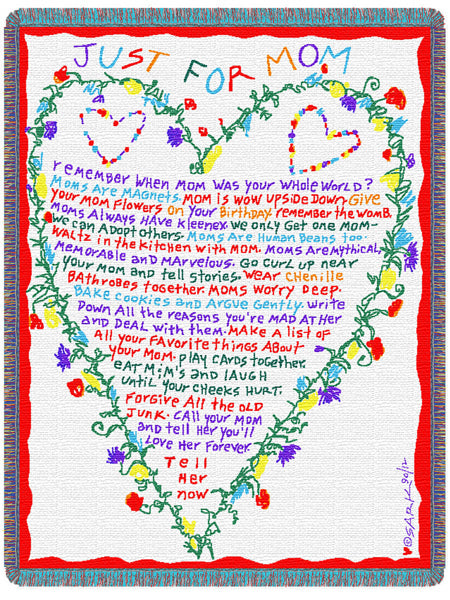 JUST FOR MOM
remember when mom was your whole world?
Moms Are MAGNets. MOM is wow upside Down. Give
your Mom Flowers on your Birthday. remember the womB.
Moms Always HAVe Kleenex. we only Get one Mom-
we can Adopt others. Moms Are Human Beans too.
WALtz in the kitchen with Mom. Moms Are Mythical,
Memorable and Marvelous. Go Curl up near
your Mom and tell stories. wear CHenille
BAthroBes together. Moms worry Deep.
BAKe cookies and Argue Gently. write
Down All the reasons you're MAD At Her
and DeAL with them. MAke A list of
All your FAVorite things ABout
your Mom. play CArds together.
eAt M;M's and lAuGH
until your cheeks Hurt.
Forgive All the olD
Junk. CAll your Mom
and tell Her you'll
Love Her Forever.
Tell
Her
now
©SARK 90/12